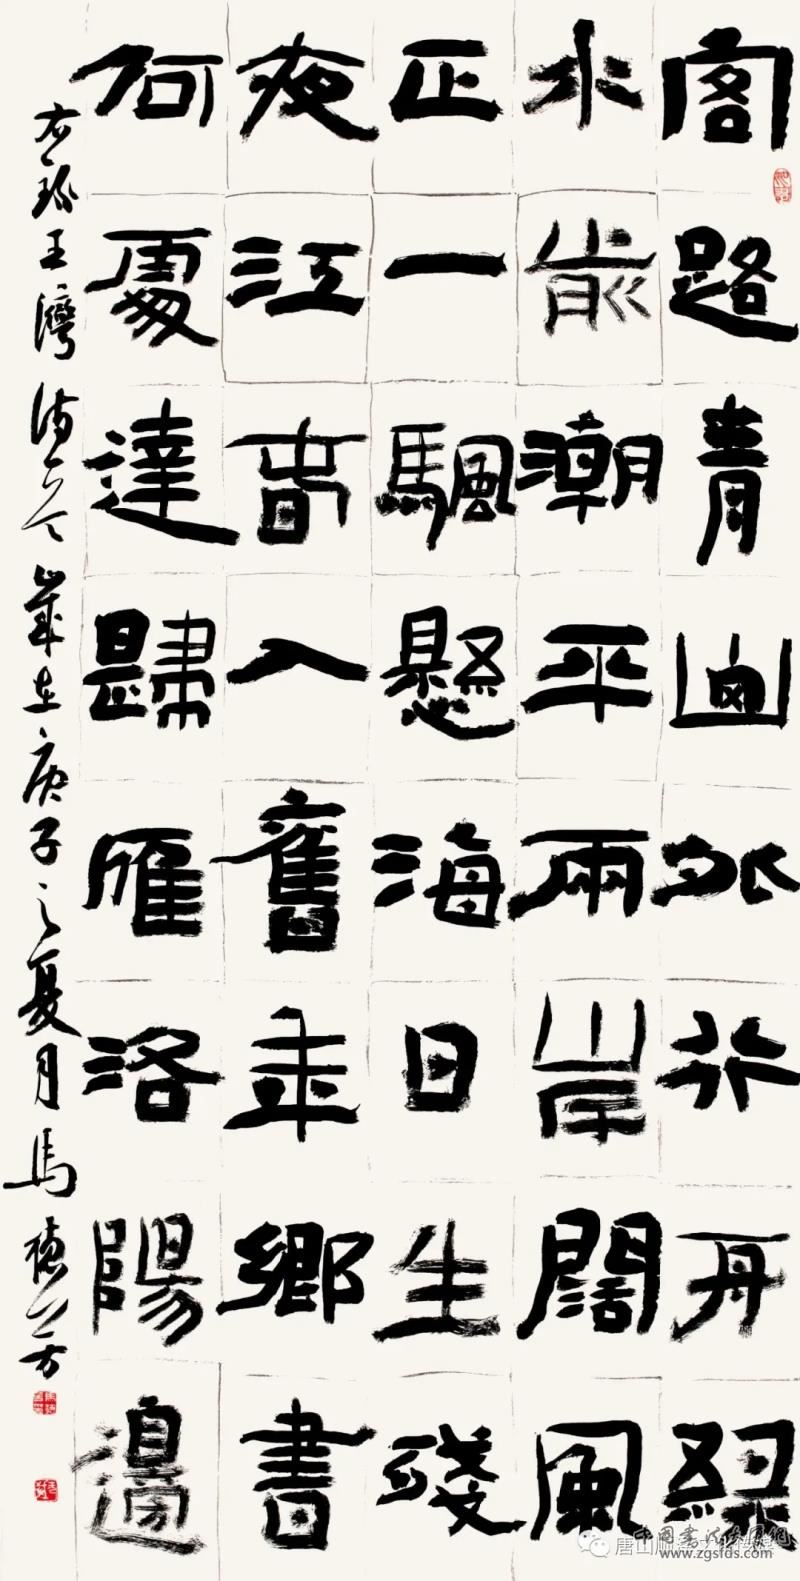 客路青山外行舟綠
水前潮平兩岸闊風
正一颿懸海日生殘
夜江春入舊年鄉書
何處達歸雁洛陽邊
右錄王灣詩一首歲在庚子之夏月馬
唐山
www.zgsfds.com